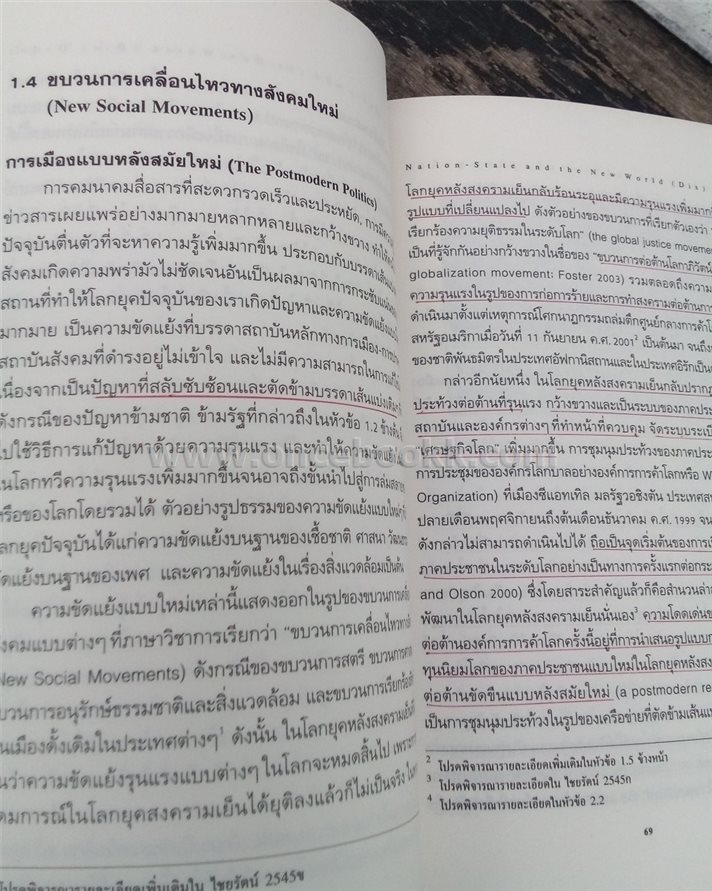 1.4 ขบวนการเคลื่อนไหวทางสังคมใหม่
(New Social Movements)
การเมืองแบบหลังสมัยใหม่ (The Postmodern Politics)
การคมนาคมสื่อสารที่สะดวกรวดเร็วและประหยัด, การมี
ข่าวสารเผยแพร่อย่างมากมายหลากหลายและกว้างขวาง ทำให้
ปัจจุบันตื่นตัวที่จะหาความรู้เพิ่มมากขึ้น ประกอบกับบรรดาเส้นแบ่ง
สังคมเกิดความพร่ามัวไม่ชัดเจนอันเป็นผลมาจากการกระชับแน่น
สถานที่ทำให้โลกยุคปัจจุบันของเราเกิดปัญหาและความขัดแย้ง
มากมาย เป็นความขัดแย้งที่บรรดาสถาบันหลักทางการเมือง-การ
สถาบันสังคมที่ดำรงอยู่ไม่เข้าใจ และไม่มีความสามารถในการแก้ไข
เนื่องจากเป็นปัญหาที่สลับซับซ้อนและตัดข้ามบรรดาเส้นแบ่งเดิมๆ
ดังกรณีของปัญหาข้ามชาติ ข้ามรัฐที่กล่าวถึงในหัวข้อ 1.2 ข้างต้น
ไปใช้วิธีการแก้ปัญหาด้วยความรุนแรง และทำให้ความขัดแย้ง
ในโลกทวีความรุนแรงเพิ่มมากขึ้นจนอาจถึงขั้นนำไปสู่การล่มสลาย
หรือของโลกโดยรวมได้ ตัวอย่างรูปธรรมของความขัดแย้งแบบใหม่
โลกยุคปัจจุบันได้แก่ความขัดแย้งบนฐานของเชื้อชาติ ศาสนา
ขัดแย้งบนฐานของเพศ และความขัดแย้งในเรื่องสิ่งแวดล้อมเป็นต้น
ความขัดแย้งแบบใหม่เหล่านี้แสดงออกในรูปของขบวนการ
สังคมแบบต่างๆ ที่ภาษาวิชาการเรียกว่า "ขบวนการเคลื่อนไหวทาง
New Social Movements) ดังกรณีของขบวนการสตรี ขบวนการ
ขบวนการอนุรักษ์ธรรมชาติและสิ่งแวดล้อม และขบวนการเรียกร้อง
นเมืองดั้งเดิมในประเทศต่างๆ¹ ดังนั้น ในโลกยุคหลังสงครามเย็น
นว่าความขัดแย้งรุนแรงแบบต่างๆ ในโลกจะหมดสิ้นไป เพราะ
ดมการณ์ในโลกยุคสงครามเย็นได้ยุติลงแล้วก็ไม่เป็นจริง
โปรดพิจารณารายละเอียดเพิ่มเติมใน ไชยรัตน์ 2545ข
Nation-State and the New World (Dis)
โลกยุคหลังสงครามเย็นกลับร้อนระอุและมีความรุนแรงเพิ่มมาก
รูปแบบที่เปลี่ยนแปลงไป ดังตัวอย่างของขบวนการที่เรียกตัวเองว่า
เรียกร้องความยุติธรรมในระดับโลก" (the global justice moveme
เป็นที่รู้จักกันอย่างกว้างขวางในชื่อของ "ขบวนการต่อต้านโลกาภิวัตน์
globalization movement: Foster 2003) รวมตลอดถึงความ
ความรุนแรงในรูปของการก่อการร้ายและการทำสงครามต่อต้านการ
ดำเนินมาตั้งแต่เหตุการณ์โศกนาฏกรรมถล่มตึกศูนย์กลางการค้า
สหรัฐอเมริกาเมื่อวันที่ 11 กันยายน ค.ศ. 2001² เป็นต้นมา จนถึง
ของชาติพันธมิตรในประเทศอัฟกานิสถานและในประเทศอิรัก
กล่าวอีกนัยหนึ่ง ในโลกยุคหลังสงครามเย็นกลับปรากฏ
ประท้วงต่อต้านที่รุนแรง กว้างขวางและเป็นระบบของภาคประชา
สถาบันและองค์กรต่างๆ ที่ทำหน้าที่ควบคุม จัดระบบระเบียบ
"เศรษฐกิจโลก" เพิ่มมากขึ้น การชุมนุมประท้วงของภาคประ
การประชุมขององค์กรโลกบาลอย่างองค์การการค้าโลกหรือ W
Organization) ที่เมืองซีแอทเทิล มลรัฐวอชิงตัน ประเทศส
ปลายเดือนพฤศจิกายนถึงต้นเดือนธันวาคม ค.ศ. 1999 จน
ดังกล่าวไม่สามารถดำเนินไปได้ ถือเป็นจุดเริ่มต้นของการ
ภาคประชาชนในระดับโลกอย่างเป็นทางการครั้งแรกต่อกระ
and Olson 2000) ซึ่งโดยสาระสำคัญแล้วก็คือสำนวนล่า
พัฒนาในโลกยุคหลังสงครามเย็นนั่นเอง³ ความโดดเด่นขอ
ต่อต้านองค์การการค้าโลกครั้งนี้อยู่ที่การนำเสนอรูปแบบก
ทุนนิยมโลกของภาคประชาชนแบบใหม่ในโลกยุคหลังสง
ต่อต้านขัดขืนแบบหลังสมัยใหม่ (a postmodern re
เป็นการชุมนุมประท้วงในรูปของเครือข่ายที่ตัดข้ามเส้นแ
² โปรดพิจารณารายละเอียดเพิ่มเติมในหัวข้อ 1.5 ข้างหน้า
³ โปรดพิจารณารายละเอียดใน ไชยรัตน์ 2545ก
⁴ โปรดพิจารณารายละเอียดในหัวข้อ 2.2
69